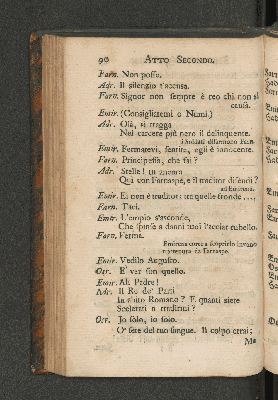 90 ATTO SECONDO.
Farn. Non posso.
Adr. Il silenzio t'accusa.
Farn. Signor non sempre è reo chi non si
scusa.
Emir. (Consigliatemi o Numi.)
Adr. Olà, si tragga
Nel carcere più nero il delinquente.
i Soldati disarmano Farn.
Emir. Fermatevi, sentite, egli è innocente.
Farn. Principessa, che fai?
Adr. Stelle! tu ancora
Quì con Farnaspe, e il traditor difendi?
ad Emirena.
Emir. Ei non è traditor: tre quelle fronde ....
Farn. Taci.
Emir. L'empio s'asconde,
Che spinse a danni tuoi l'acciar rubello.
Farn. Ferma.
Emirena corre a scoprirlo invano
trattenuta da Farnaspe.
Emir. Vedilo Augusto.
Osr. E' ver son quello.
Emir. Ah Padre!
Adr. Il Re de' Parti
In abito Romano? E quanti siete
Scelerati a tradirmi?
Osr. Io solo, io solo.
O' sete del tuo sangue. Il colpo errai;
Ma